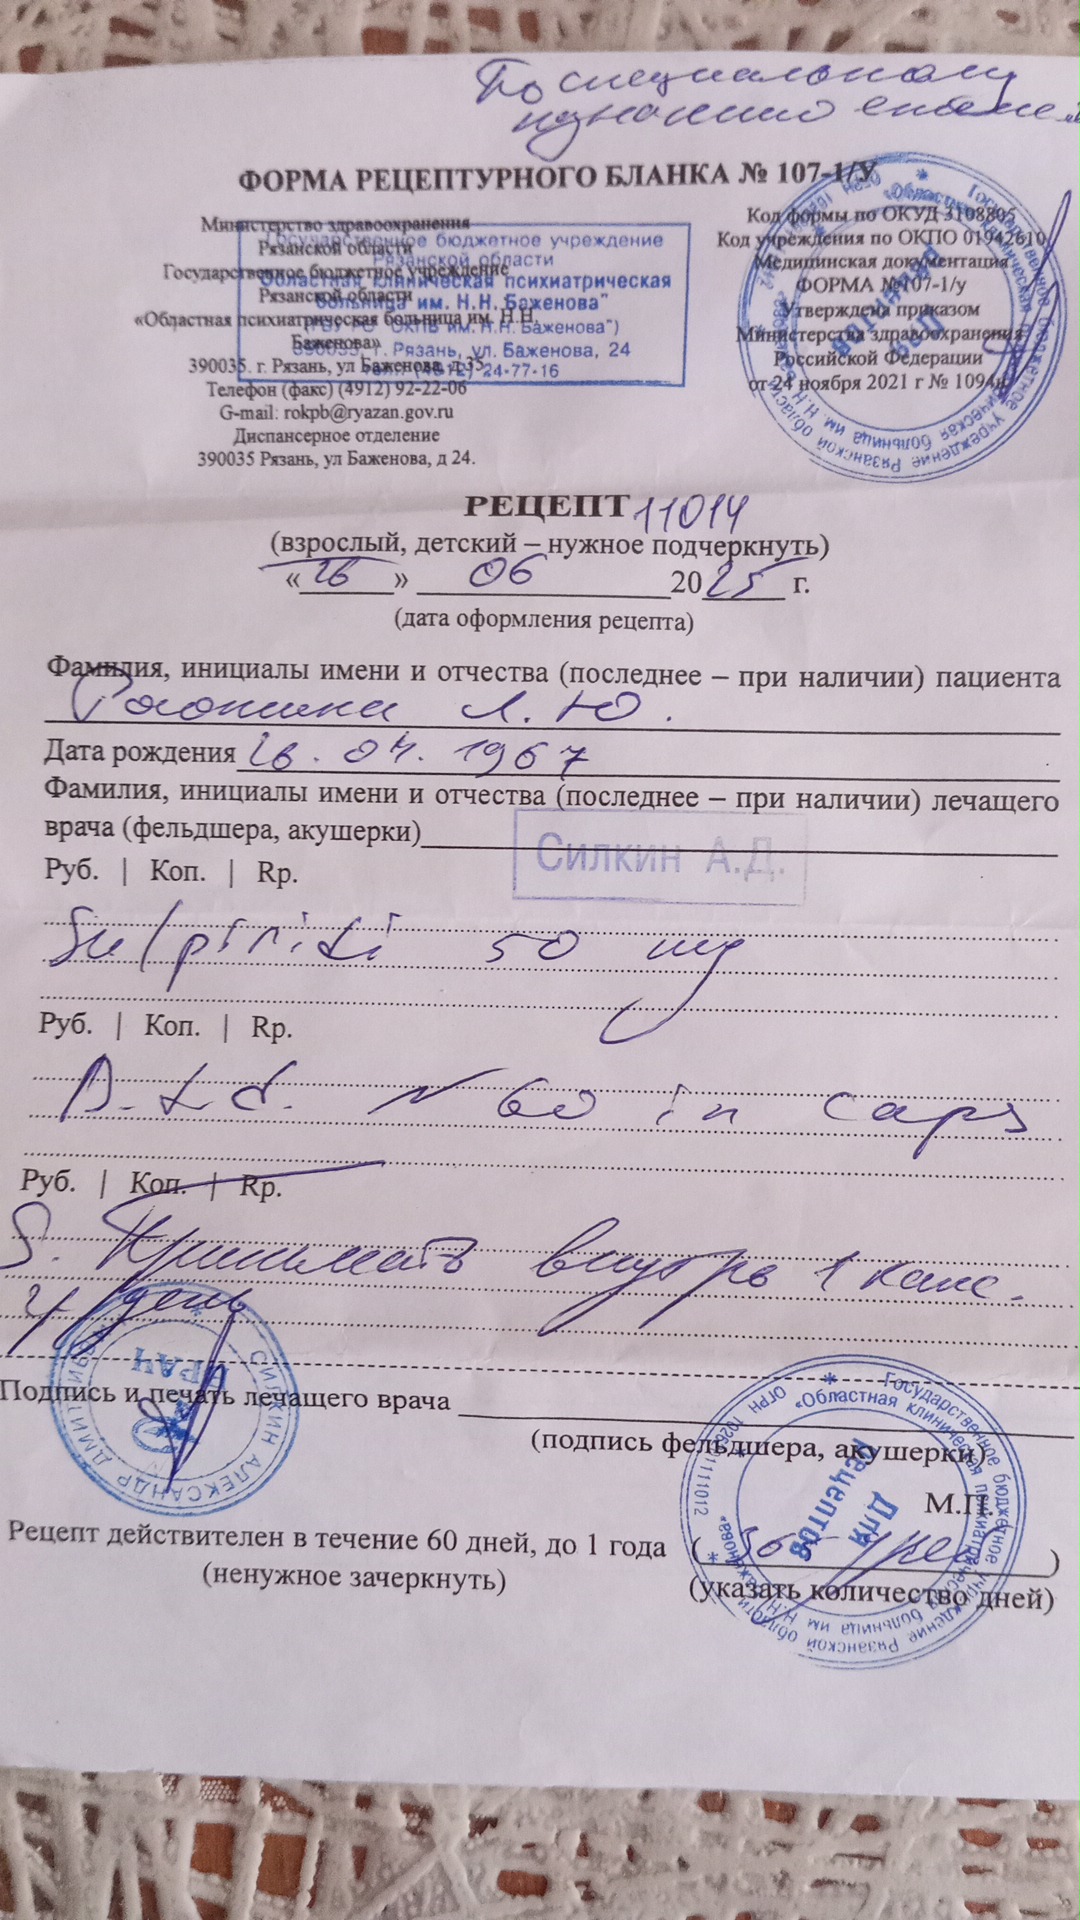 По специальному
назначению
ФОРМА РЕЦЕПТУРНОГО БЛАНКА № 107-1/У
Министерство здравоохранения
Рязанской области
Государственное бюджетное учреждение
Рязанской области
«Областная психиатрическая больница им. Н.Н.
Баженова»
390035. г. Рязань, ул Баженова, д 35
Телефон (факс) (4912) 92-22-06
G-mail: rokpb@ryazan.gov.ru
Диспансерное отделение
390035 Рязань, ул Баженова, д 24.
Государственное бюджетное учреждение
Рязанской области
"Областная клиническая психиатрическая
больница им. Н.Н. Баженова"
им. Н.Н. Баженова")
390035, г. Рязань, ул. Баженова, 24
тел. (4912) 24-77-16
Код формы по ОКУД 3108805
Код учреждения по ОКПО 01942610
Медицинская документация
ФОРМА №107-1/у
Утверждена приказом
Министерства здравоохранения
Российской Федерации
от 24 ноября 2021 г № 1094н
Для рецептов
РЕЦЕПТ 11014
(взрослый, детский – нужное подчеркнуть)
«26» 06 2025 г.
(дата оформления рецепта)
Фамилия, инициалы имени и отчества (последнее – при наличии) пациента
Л. Ю.
Дата рождения 26. 04. 1967
Фамилия, инициалы имени и отчества (последнее – при наличии) лечащего
врача (фельдшера, акушерки)
Силкин А.Д.
Руб. | Коп. | Rp.
Sulpiridi 50 mg
Руб. | Коп. | Rp.
D.t.d. N 60 in caps
Руб. | Коп. | Rp.
S. Принимать внутрь 1 капс.
день
ВРАЧ
СИЛКИН АЛЕКСАНДР
Подпись и печать лечащего врача
(подпись фельдшера, акушерки)
М.П.
Государственное бюджетное учреждение Рязанской области
«Областная клиническая психиатрическая больница им Н.Н. Баженова»
Для рецептов
Рецепт действителен в течение 60 дней, до 1 года ( )
(ненужное зачеркнуть)
(указать количество дней)